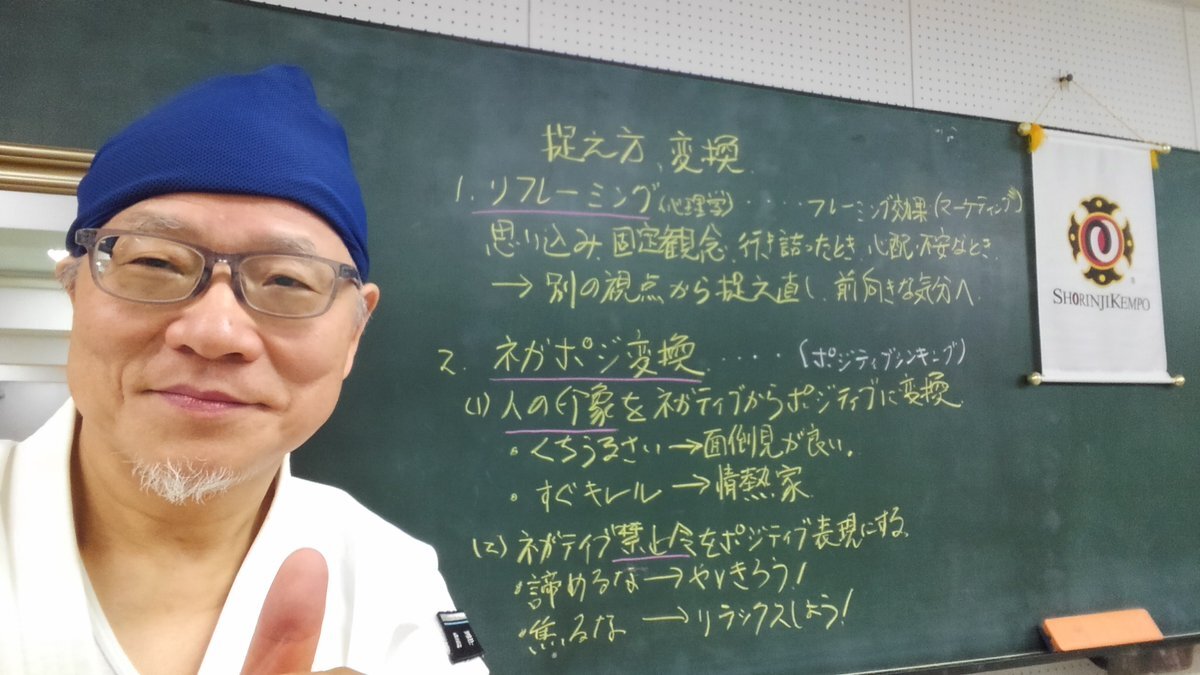 捉え方変換
1. リフレーミング(心理学)・・・・フレーミング効果(マーケティング)
思い込み、固定観念、行き詰ったとき、心配・不安なとき、
→ 別の視点から捉え直し、前向きな気分へ
2. ネガポジ変換・・・・(ポジティブシンキング)
(1) 人の印象をネガティブからポジティブに変換
・くちうるさい→面倒見が良い。
・すぐキレル→情熱家
(2) ネガティブ禁止令をポジティブ表現にする
・諦めるな→やりきろう!
・焦るな→リラックスしよう!
SHORINJI KEMPO